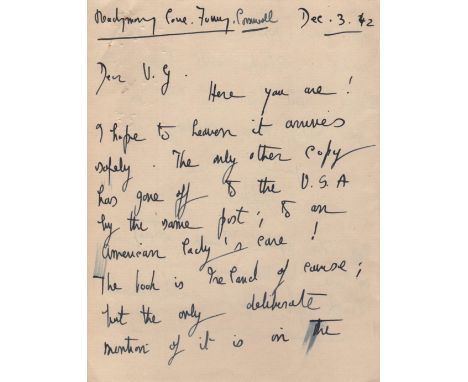 Readymoney Cove. Fowey. Cornwall Dec. 3. 42
Dear V. G.
Here you are!
I hope to heaven it arrives
safely. The only other copy
has gone off to the U.S.A
by the same post; to an
American lady's care!
The book is Ireland of course;
but the only deliberate
mention of it is in the